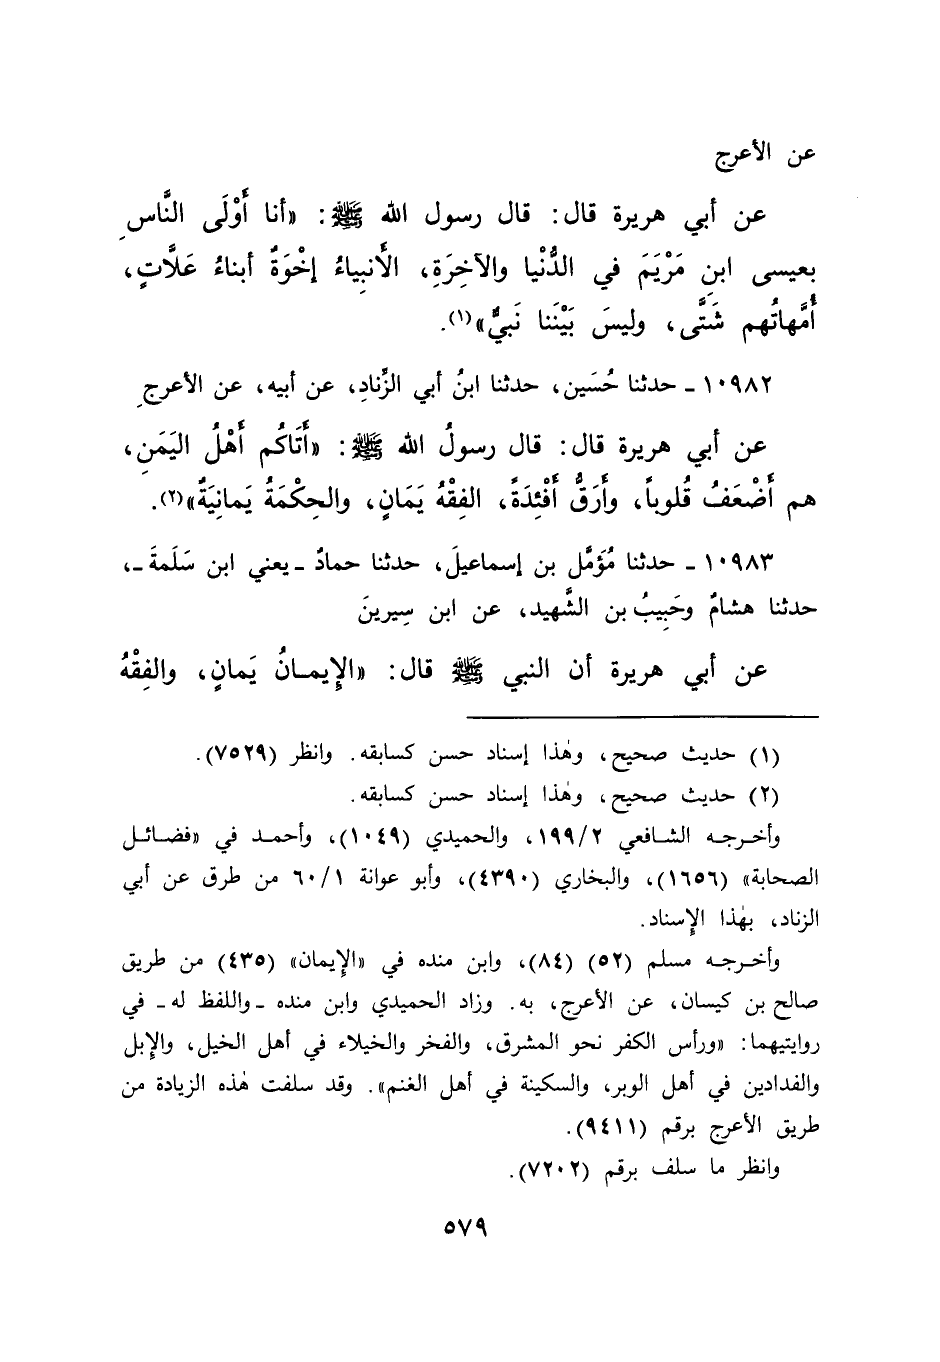 عن الأعرج
عن أبي هريرة قال: قال رسول الله ﷺ: «أنا أَوْلَى النَّاسِ
بعيسى ابنِ مَرْيَمَ في الدُّنْيا والآخِرَةِ، الأَنبِياءُ إخْوَةٌ أبناءُ عَلَّاتٍ،
أُمَّهاتُهم شَتَّى، وليسَ بَيْنَنا نَبيٌّ»(١).
١٠٩٨٢ ـ حدثنا حُسَين، حدثنا ابنُ أبي الزِّنادِ، عن أبيه، عن الأعرجِ
عن أبي هريرة قال: قال رسولُ الله ﷺ: «أَتَاكُم أَهْلُ اليَمَنِ،
هم أَضْعَفُ قُلوباً، وأَرَقُّ أَفْئِدَةً، الفِقْهُ يَمَانٍ، والحِكْمَةُ يَمانِيَةٌ»(٢).
١٠٩٨٣ ـ حدثنا مُؤَمَّل بن إسماعيلَ، حدثنا حمادٌ ـ يعني ابن سَلَمةَ ـ،
حدثنا هشامٌ وحَبِيبُ بن الشَّهيد، عن ابن سِيرينَ
عن أبي هريرة أن النبي ﷺ قال: «الإِيمـانُ يَمانٍ، والفِقْهُ
(١) حديث صحيح، وهٰذا إسناد حسن كسابقه. وانظر (٧٥٢٩).
(٢) حديث صحيح، وهٰذا إسناد حسن كسابقه.
وأخرجه الشافعي ١٩٩/٢، والحميدي (١٠٤٩)، وأحمد في «فضائل
الصحابة» (١٦٥٦)، والبخاري (٤٣٩٠)، وأبو عوانة ٦٠/١ من طرق عن أبي
الزناد، بهٰذا الإِسناد.
وأخرجه مسلم (٥٢) (٨٤)، وابن منده في «الإِيمان» (٤٣٥) من طريق
صالح بن كيسان، عن الأعرج، به. وزاد الحميدي وابن منده ـ واللفظ له ـ في
روايتيهما: «ورأس الكفر نحو المشرق، والفخر والخيلاء في أهل الخيل، والإِبل
والفدادين في أهل الوبر، والسكينة في أهل الغنم». وقد سلفت هٰذه الزيادة من
طريق الأعرج برقم (٩٤١١).
وانظر ما سلف برقم (٧٢٠٢).
٥٧٩